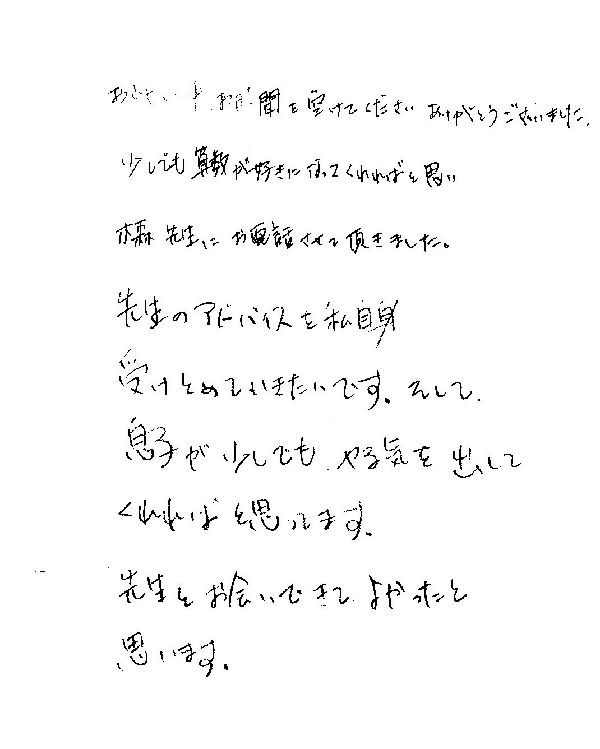 お忙しい中 お時間を空けてくださいありがとうございました。
少しでも算数が好きになってくれればと思い
先生にお電話させて頂きました。
先生のアドバイスを私自身
受けとめていきたいです。そして、
息子が少しでもやる気を出して
くれればと思ってます。
先生とお会いできてよかったと
思います。